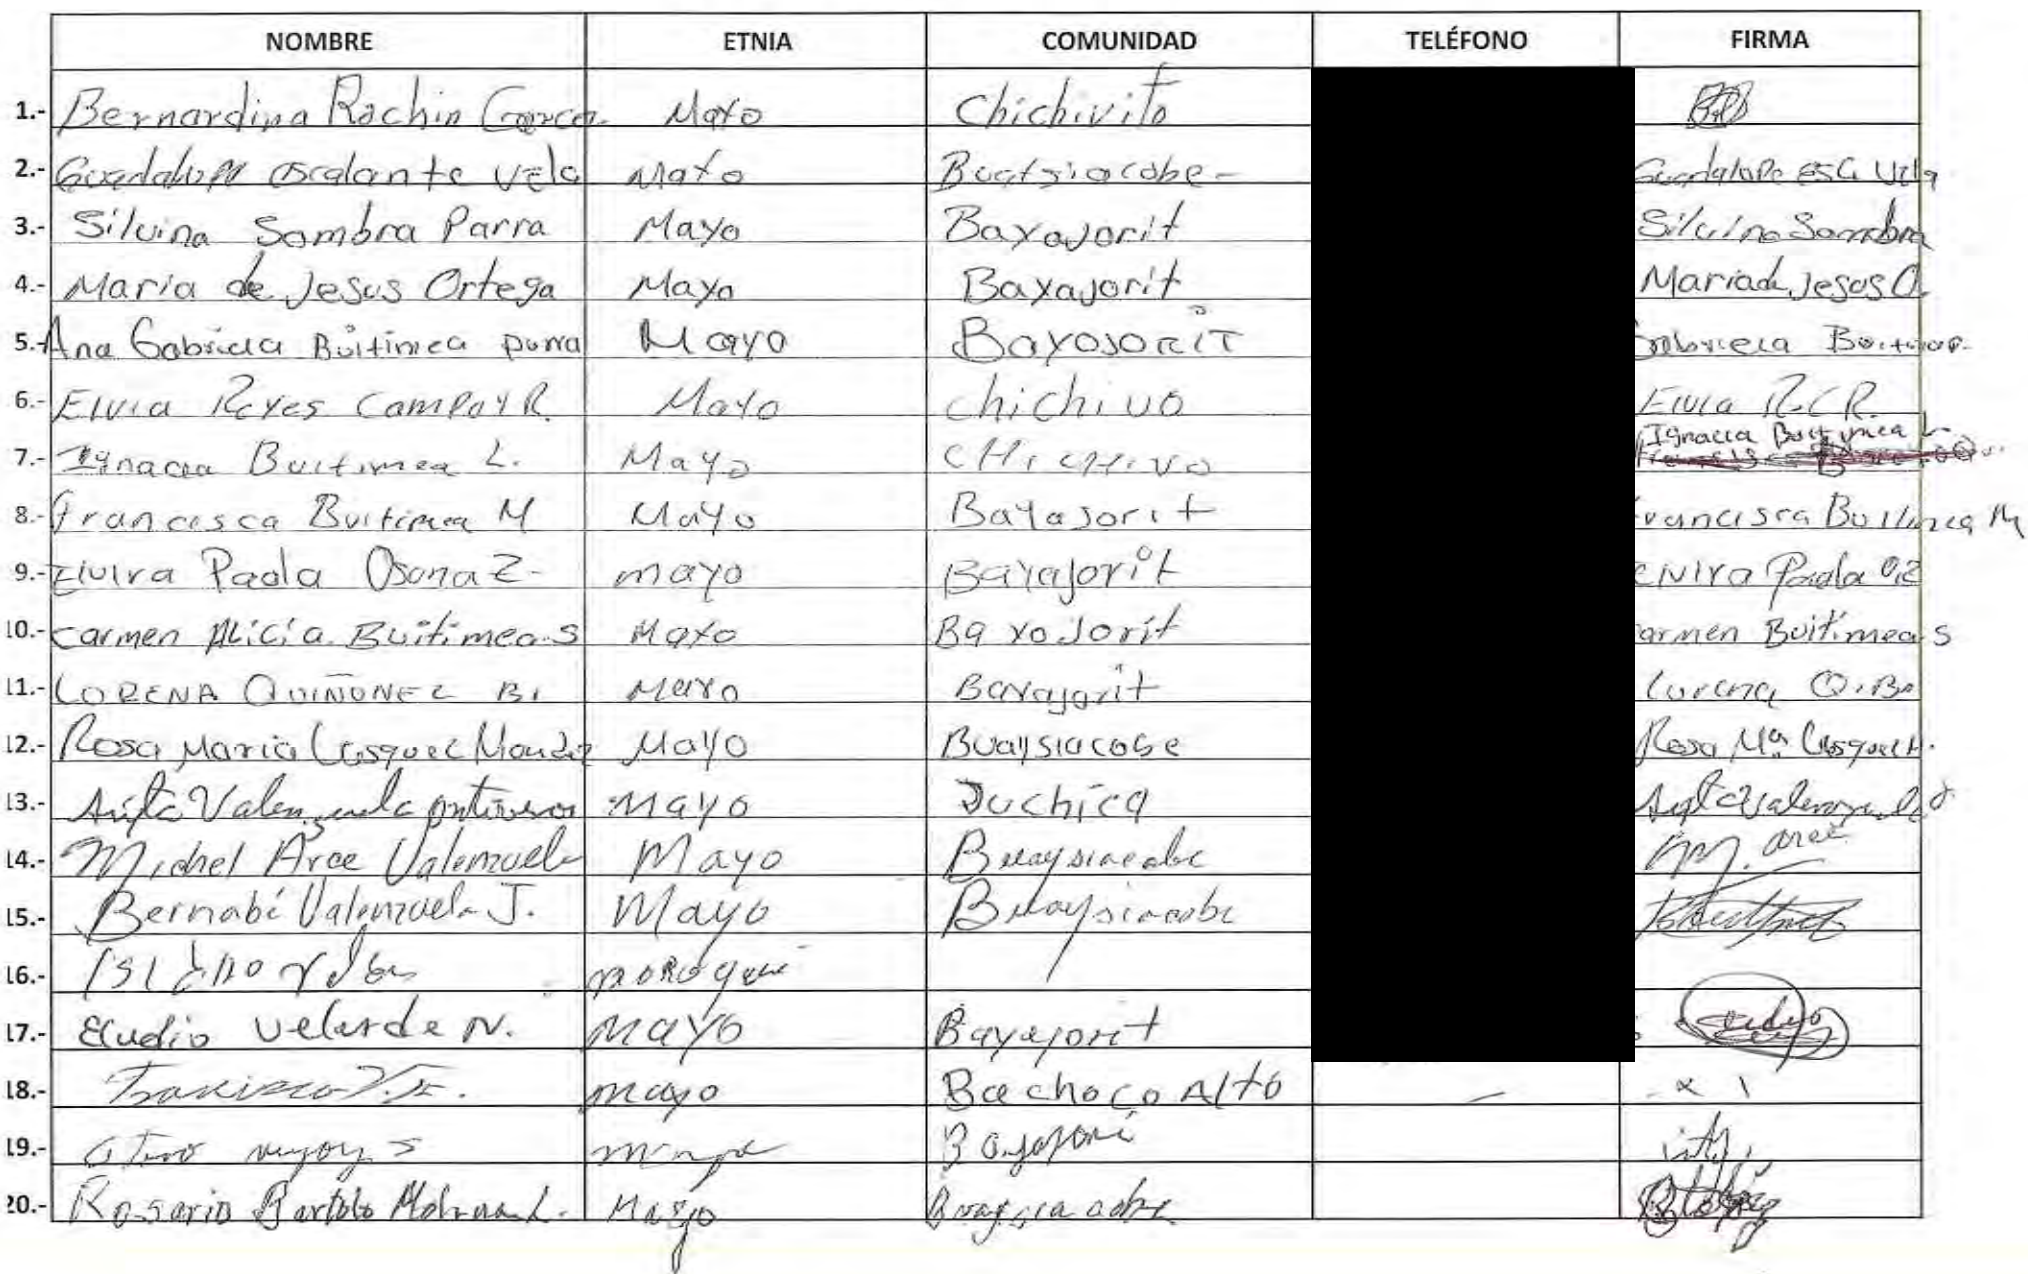 NOMBRE ETNIA COMUNIDAD TELÉFONO FIRMA
1.- Bernardina Rachin Mayo Chichivito
2.- Guadalupe escalante vela Mayo Buatsiacobe- Guadalupe esca Vela
3.- Silvina Sombra Parra Mayo Bayajorit Silvina Sombra
4.- Maria de Jesus Ortega Mayo Bayajorit Maria de Jesus O.
5.- Ana Gabriela Buitimea parra Mayo Bayojorit Gabriela
6.- Elvia Reyes Campoy R. Mayo chichivo Elvia R.C R.
7.- Ignacia Buitimea L. Mayo CHiCHivo Ignacia Buitimea L.
8.- francisca Buitimea M Mayo Bayajorit francisca Buitimea M
9.- Elvira Paola Osuna Z- mayo Bayajorit elvira Paola O.Z
10.- carmen Alicia Buitimea S Mayo Bayojorit carmen Buitimea S
11.- LORENA QUIÑONEZ B. Mayo Bayajorit Lorena Q.B.
12.- Rosa Maria Mayo Buaysiacobe Rosa Mª
13.- Valenzuela Mayo Juchica
14.- Michel Arce Valenzuela Mayo Buaysiacobe M. arce
15.- Bernabé Valenzuela J. Mayo Buaysiacobe
16.-
17.- Eludio Velarde N. Mayo Bayajorit
18.- mayo Bachoco Alto
19.-
20.- Rosario Bartolo Molina L. Mayo Buaysiacobe